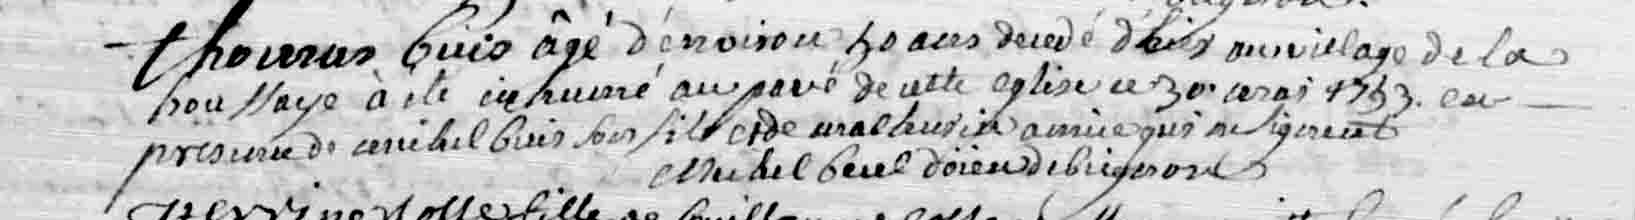 thomas buis âgé d'environ 50 ans decedé d'hier au village de la
houssaye à été inhumé au pavé de cette eglise ce 30e mai 1753. en
presence de michel buis son fils et de mathurin amice qui ne signent
Michel doien de
perrine fille de